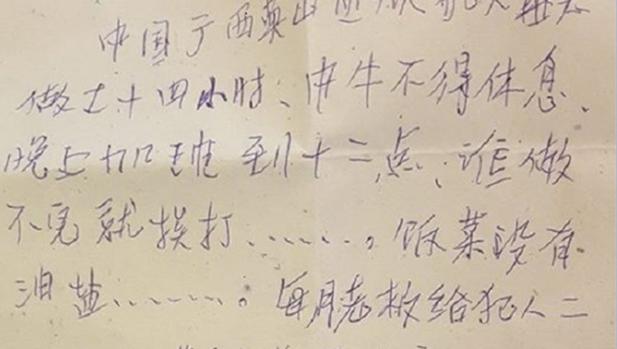 中国广西英山监狱犯人每天
做工十四小时、中午不得休息、
晚上加班到十二点、谁做
不完就挨打……。饭菜没有
油盐……。每月老板给犯人二